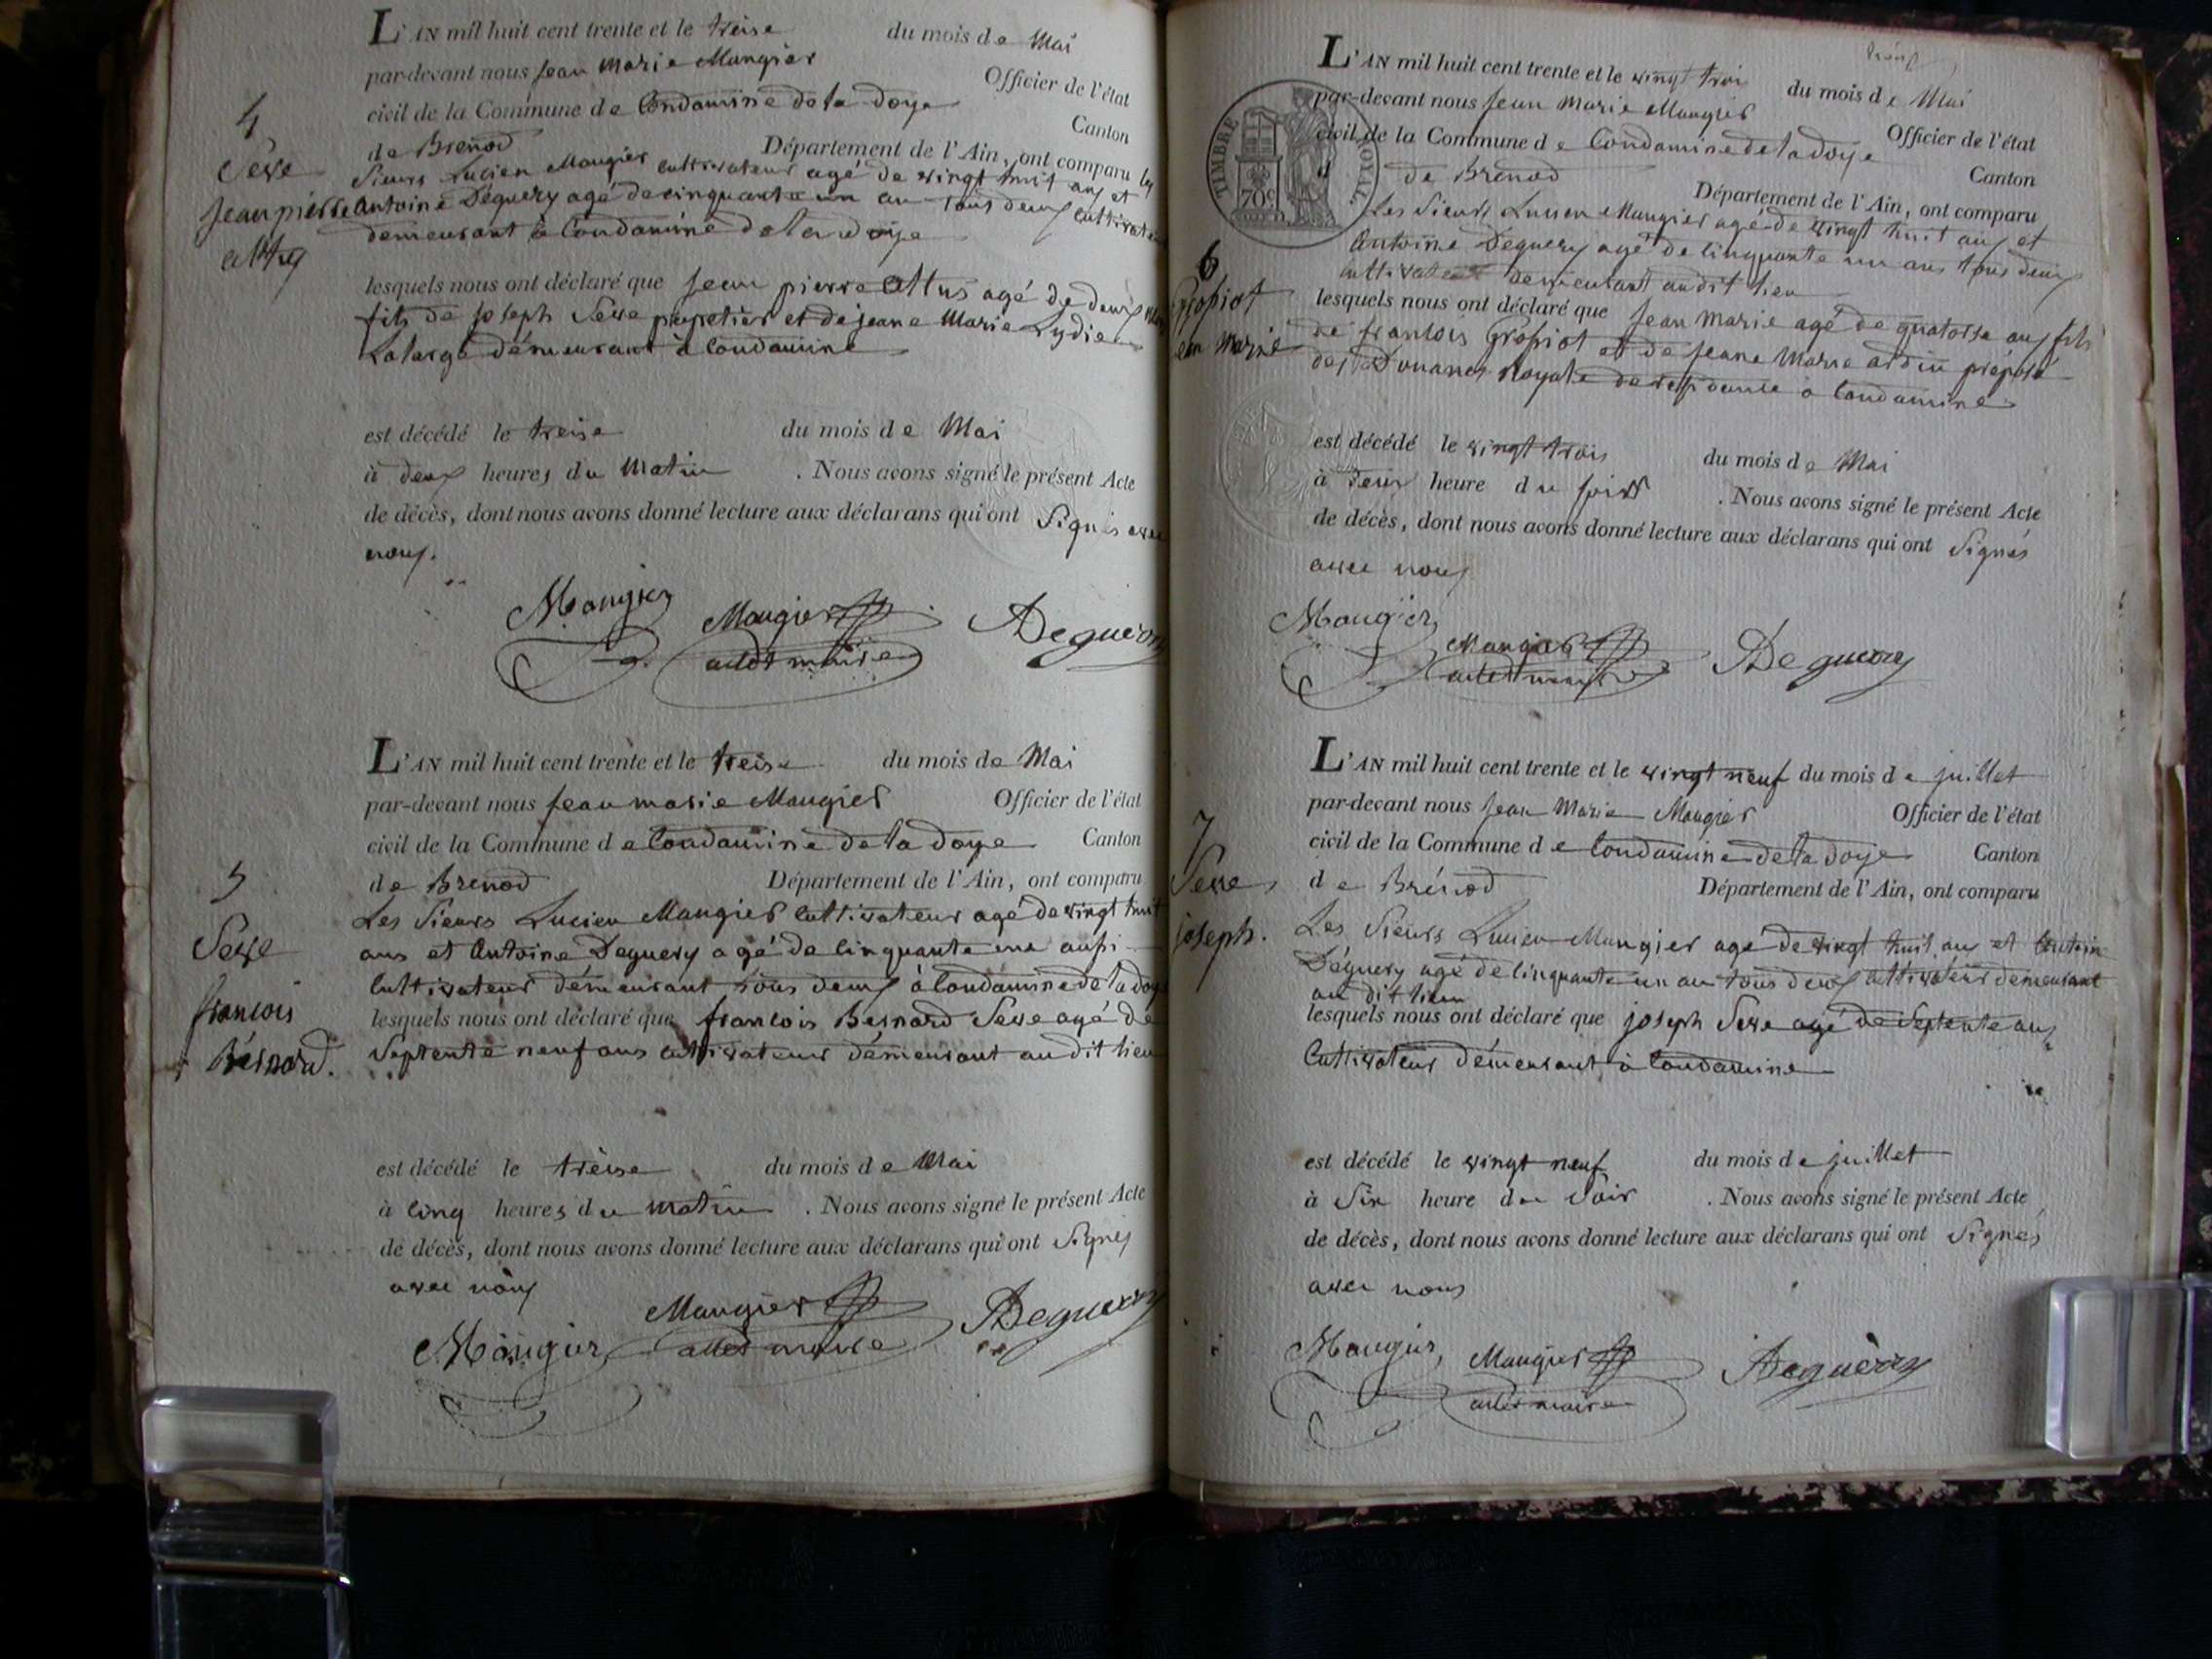 4
Seve
jean pierre
attus
L'AN mil huit cent trente et le treise du mois de Mai
par-devant nous jean marie Maugier Officier de l'état
civil de la Commune de Condamine de la doye Canton
de Brenod Département de l'Ain, ont comparu les
Sieurs Lucien Maugier cultivateur agé de vingt huit ans et
Antoine Deguery agé de cinquante un an tous deux cultivateur
demeurant à Condamine de la doye
lesquels nous ont déclaré que jean pierre attus agé de deux
fils de joseph Seve propetier et de jeane Marie Lydie
Lalarge démeurant à Condamine
est décédé le treise du mois de Mai
à deux heures du Matin . Nous avons signé le présent Acte
de décès, dont nous avons donné lecture aux déclarans qui ont Signés avec
nous.
Maugier Maugier Deguery
adt maire
5
Seve
francois
Bernard.
L'AN mil huit cent trente et le treise du mois de Mai
par-devant nous jean marie Maugier Officier de l'état
civil de la Commune de Condamine de la doye Canton
de Brenod Département de l'Ain, ont comparu
Les Sieurs Lucien Maugier Cultivateur agé de vingt huit
ans et Antoine Deguery agé de Cinquante une aussi
Cultivateur démeurant tous deux à Condamine de la doye
lesquels nous ont déclaré que francois Bernard Seve agé de
Septente neuf ans cultivateur démeurant au dit lieu
est décédé le treise du mois de Mai
à Cinq heures du matin . Nous avons signé le présent Acte
de décès, dont nous avons donné lecture aux déclarans qui ont Signés
avec nous
Maugier Maugier Deguery
adt maire
L'AN mil huit cent trente et le vingt trois du mois de Mai
par-devant nous jean Marie Maugier Officier de l'état
civil de la Commune de Condamine de la doye Canton
d de Brenod Département de l'Ain, ont comparu
TIMBRE ROYAL
70c
Les Sieurs Lucien Maugier agé de vingt huit ans et
Antoine Deguery agé de Cinquante un ans tous deux
cultivateur demeurant audit lieu
6
Gropiot
jean Marie
lesquels nous ont déclaré que jean marie agé de quatorse ans fils
de francois Gropiot et de jeane Marie ardin préposé
des Douanes Royale de residance à Condamine
est décédé le vingt trois du mois de Mai
à deux heure du soir . Nous avons signé le présent Acte
de décès, dont nous avons donné lecture aux déclarans qui ont Signés
avec nous
Maugier Maugier Deguery
adt maire
7
Seve
joseph.
L'AN mil huit cent trente et le vingt neuf du mois de juillet
par-devant nous jean Marie Maugier Officier de l'état
civil de la Commune de Condamine de la doye Canton
de Brénod Département de l'Ain, ont comparu
Les Sieurs Lucien Maugier agé de vingt huit an et Antoine
Déguery agé de Cinquante un an tous deux cultivateur demeurant
au dit lieu
lesquels nous ont déclaré que joseph Seve agé de Septente ans
Cultivateur démeurant à Condamine
est décédé le vingt neuf du mois de juillet
à Six heure du Soir . Nous avons signé le présent Acte
de décès, dont nous avons donné lecture aux déclarans qui ont Signés
avec nous
Maugier Maugier Deguery
adt maire